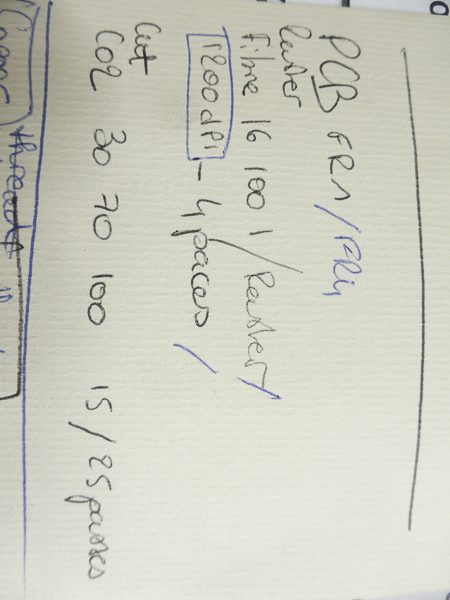 PCB FR1/FR4
Raster
Fibre 16 100 1 /Raster/
1200dpi - 4 paces /
Cut
CO2 30 70 100 15/25 passes
thread